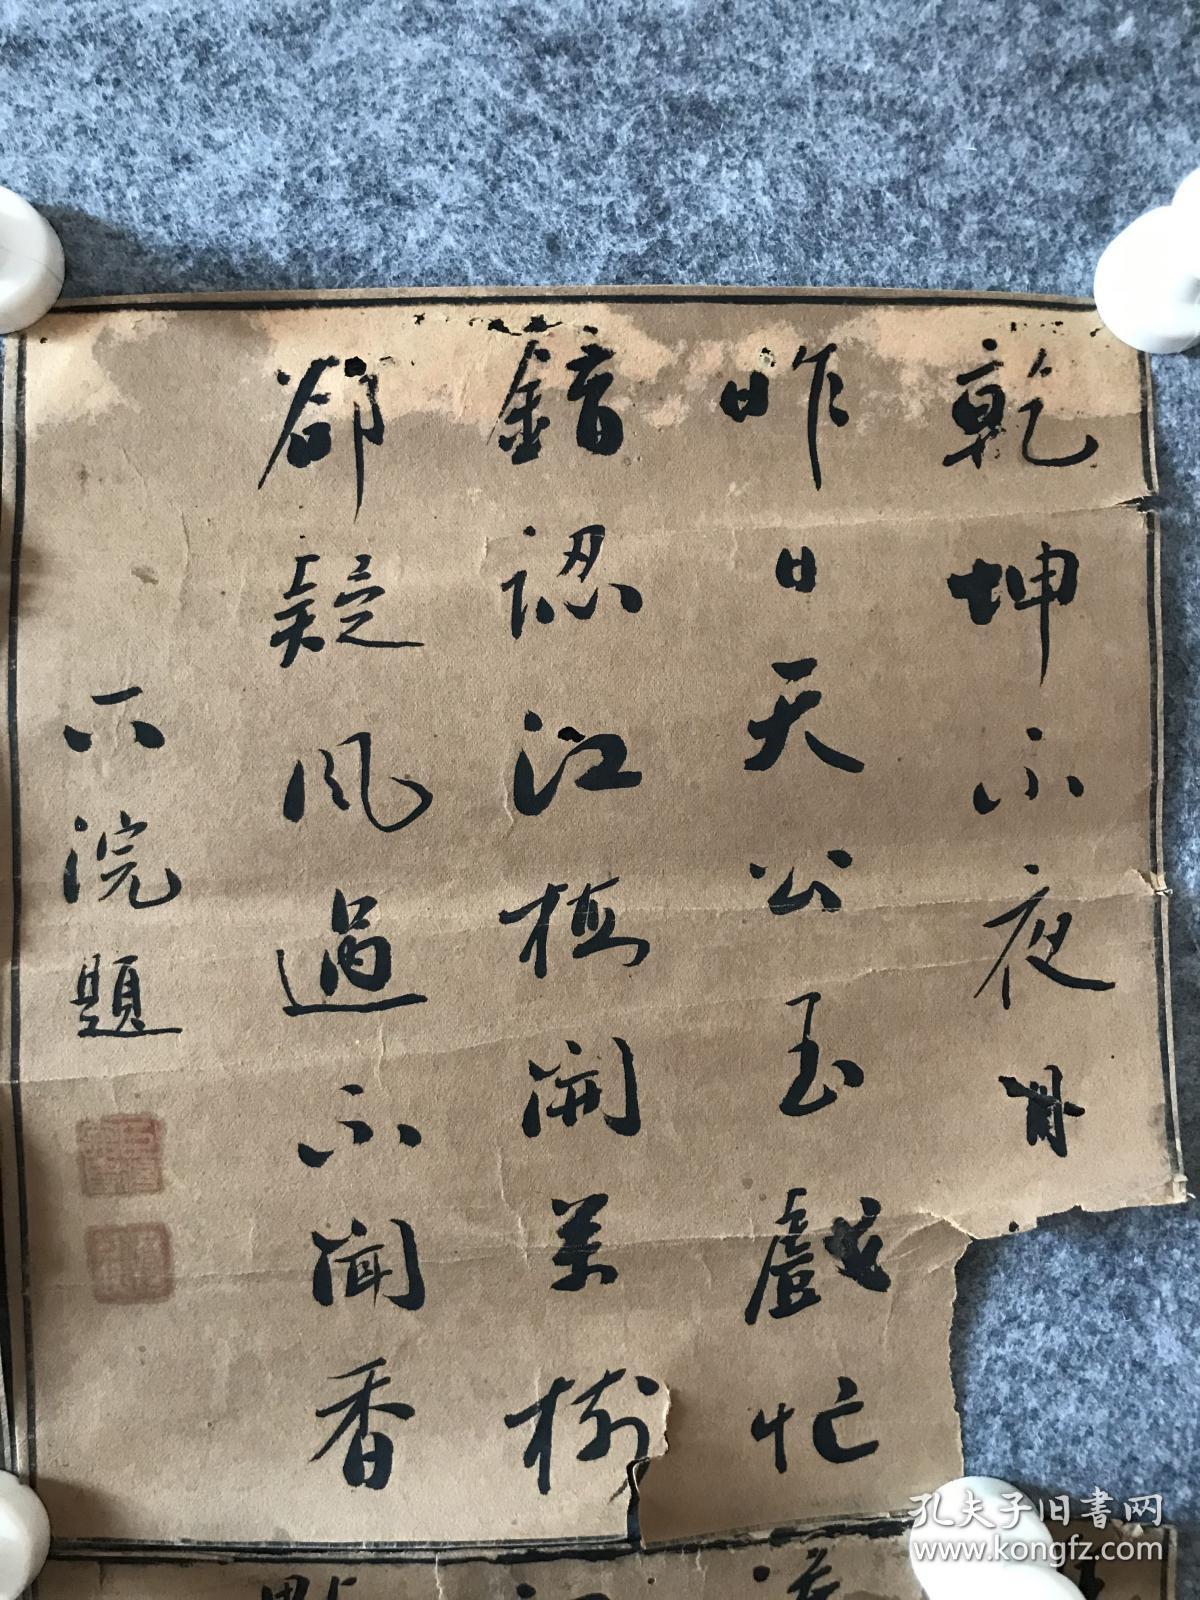 乾坤不夜月
昨日天公玉戲忙
錯認江梅開萬樹
卻疑風過不聞香
六浣題
孔夫子旧書网
www.kongfz.com